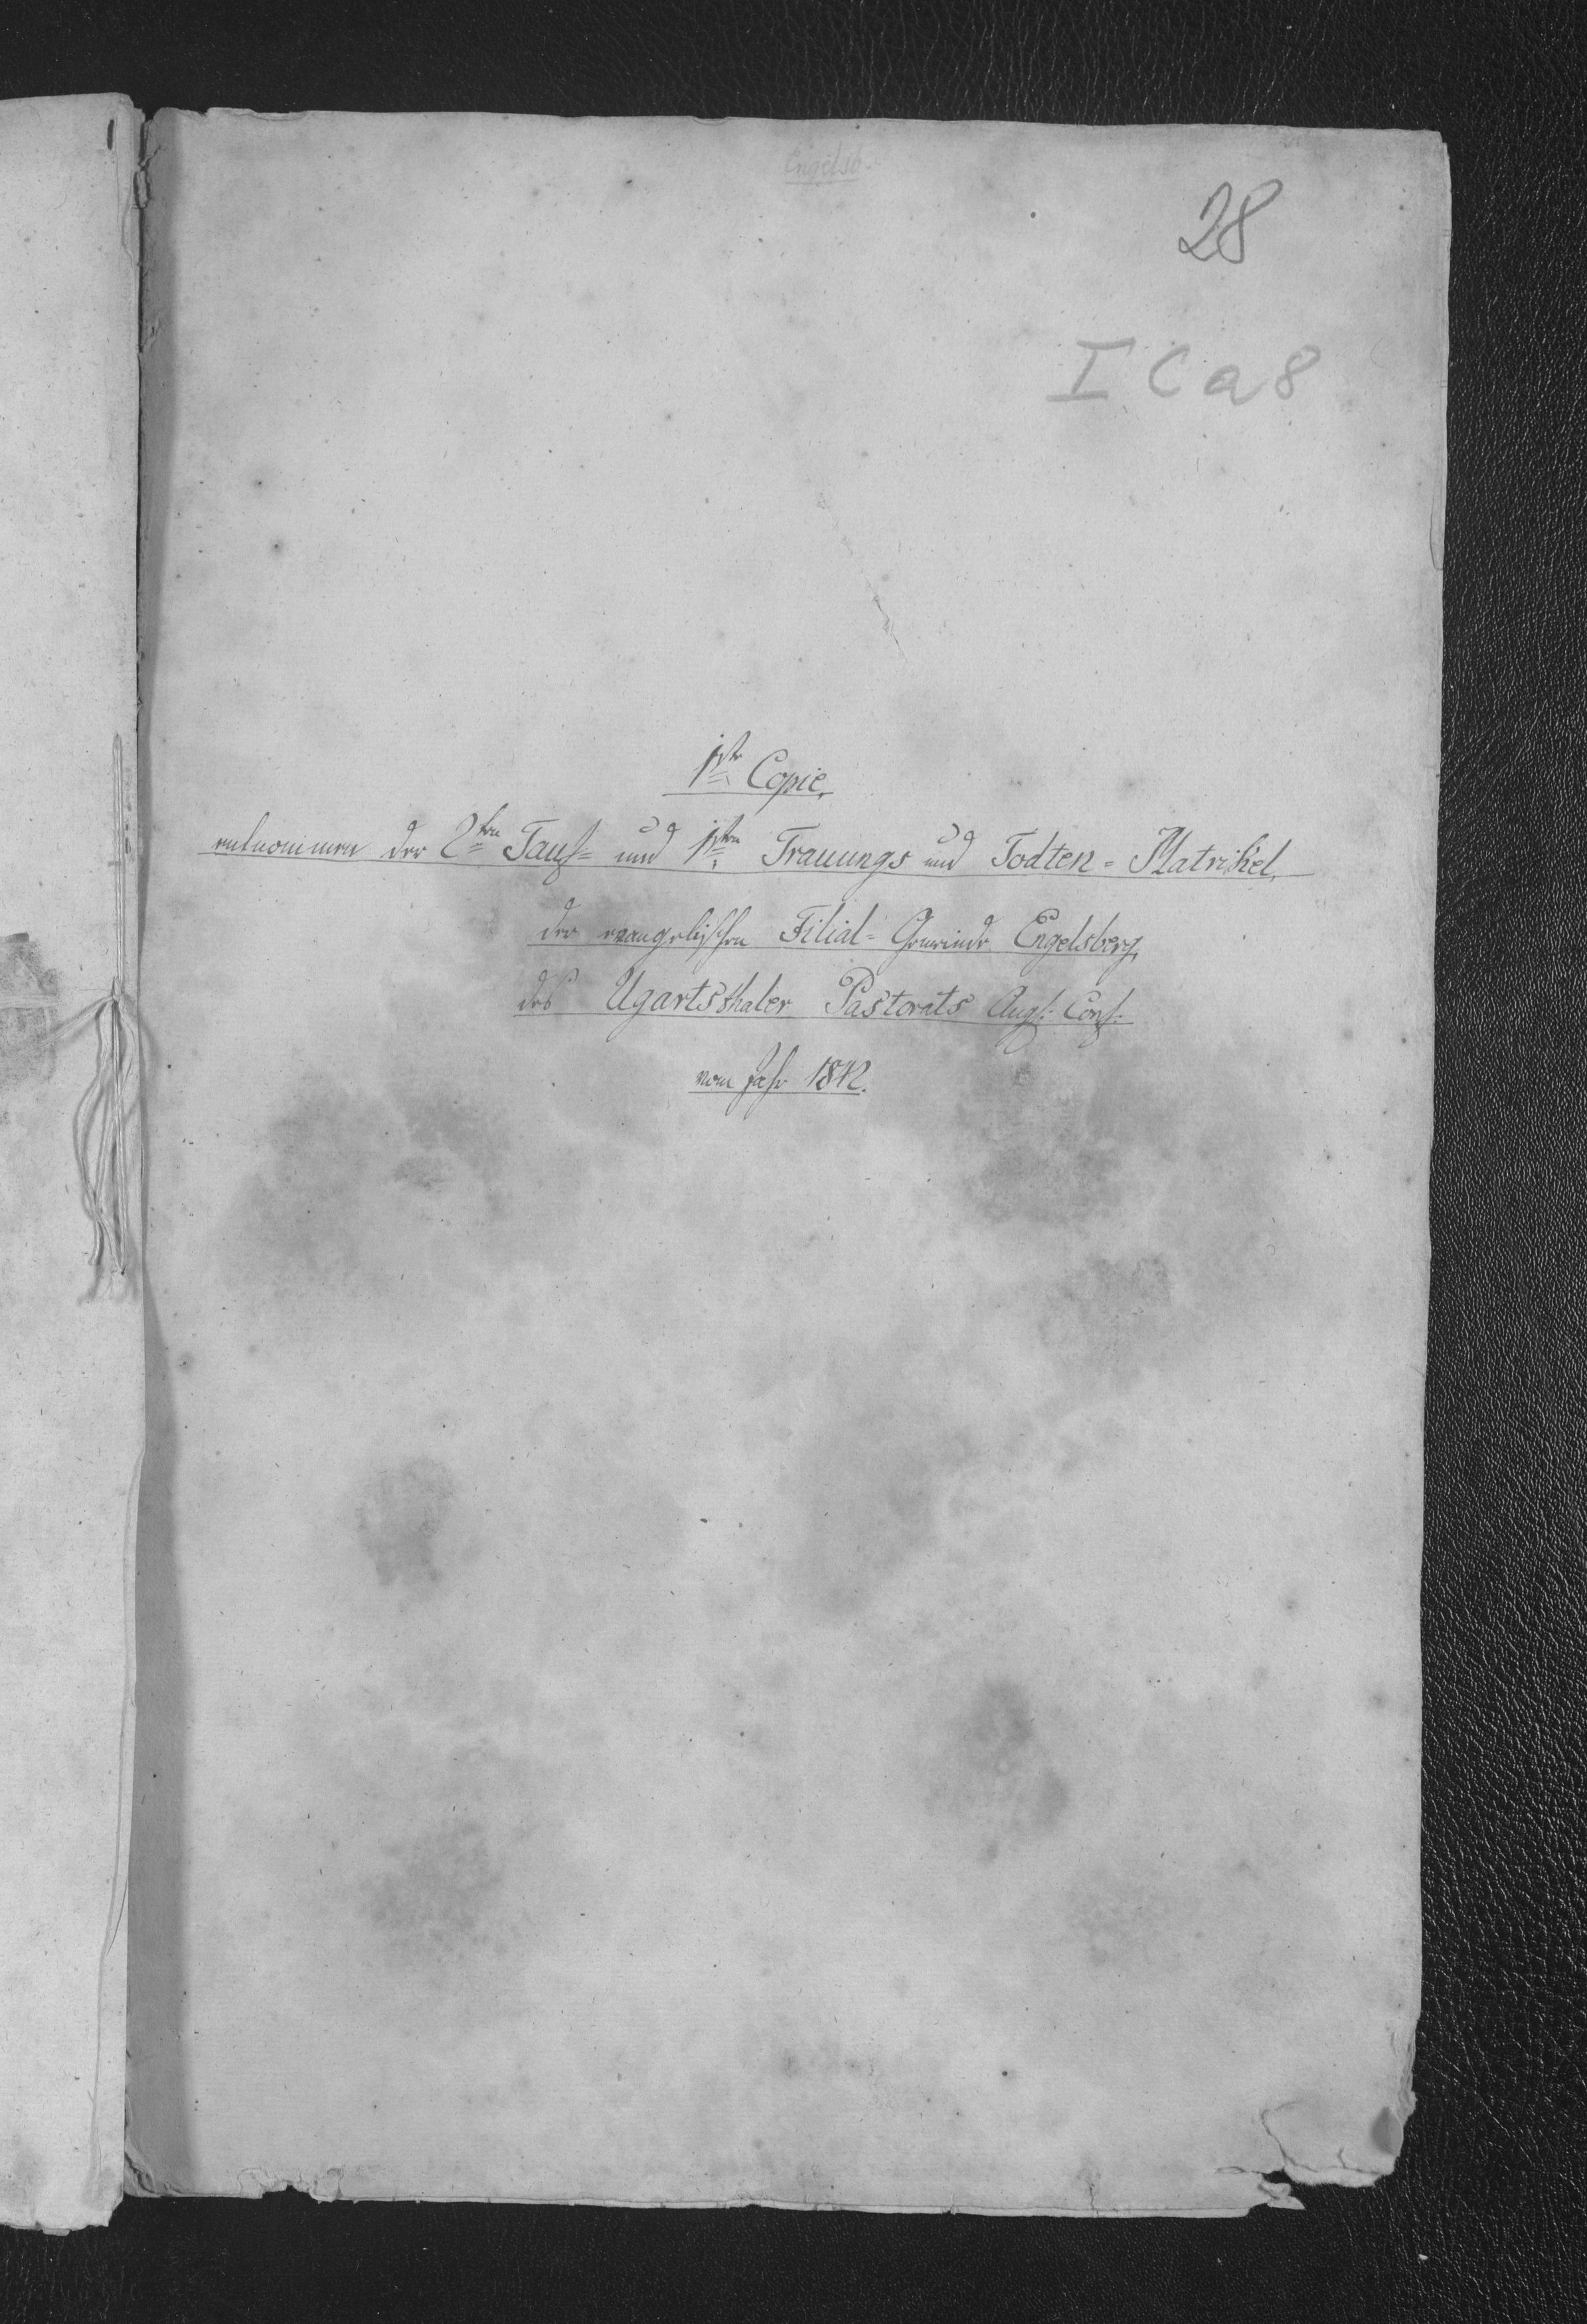 Engelsb.
28
I C a 8
1ste Copie,
entnommen der 2ten Tauf= und 1sten Trauungs und Todten=Matrikel,
der evangelischen Filial=Gemeinde Engelsberg,
des Ugartsthaler Pastorats Augs: Conf:
vom Jahr 1842.